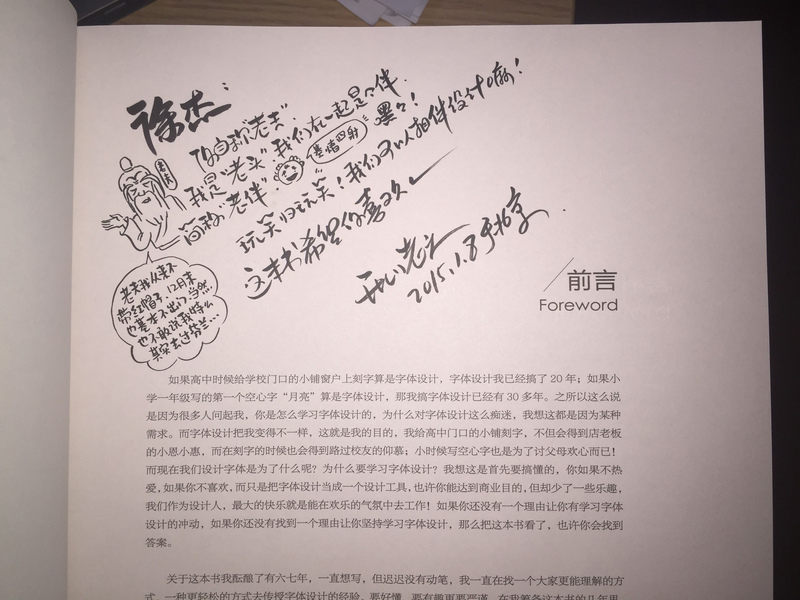 徐杰:
你自称“老夫”.
我是“老头”.我们在一起是个伴.
简称“老伴”.
基情四射
嘿嘿!
玩笑归玩笑!我们可以相伴设计嘛!
这本书希望你喜欢
2015.1.8于北京.
老夫
老夫我从来不
带红帽子,12月末
也基本不出门.当然
也不敢说我特么
其实去过芬兰...
前言
Foreword
如果高中时候给学校门口的小铺窗户上刻字算是字体设计,字体设计我已经搞了 20 年;如果小
学一年级写的第一个空心字“月亮”算是字体设计,那我搞字体设计已经有 30 多年。之所以这么说
是因为很多人问起我,你是怎么学习字体设计的,为什么对字体设计这么痴迷,我想这都是因为某种
需求。而字体设计把我变得不一样,这就是我的目的,我给高中门口的小铺刻字,不但会得到店老板
的小恩小惠,而在刻字的时候也会得到路过校友的仰慕;小时候写空心字也是为了讨父母欢心而已!
而现在我们设计字体是为了什么呢?为什么要学习字体设计?我想这是首先要搞懂的,你如果不热
爱,如果你不喜欢,而只是把字体设计当成一个设计工具,也许你能达到商业目的,但却少了一些乐趣,
我们作为设计人,最大的快乐就是能在欢乐的气氛中去工作!如果你还没有一个理由让你有学习字体
设计的冲动,如果你还没有找到一个理由让你坚持学习字体设计,那么把这本书看了,也许你会找到
答案。
关于这本书我酝酿了有六七年,一直想写,但迟迟没有动笔,我一直在找一个大家更能理解的方
式,一种更轻松的方式去传授字体设计的经验,要好懂,要有趣更要严谨,在我筹备这本书的几年里